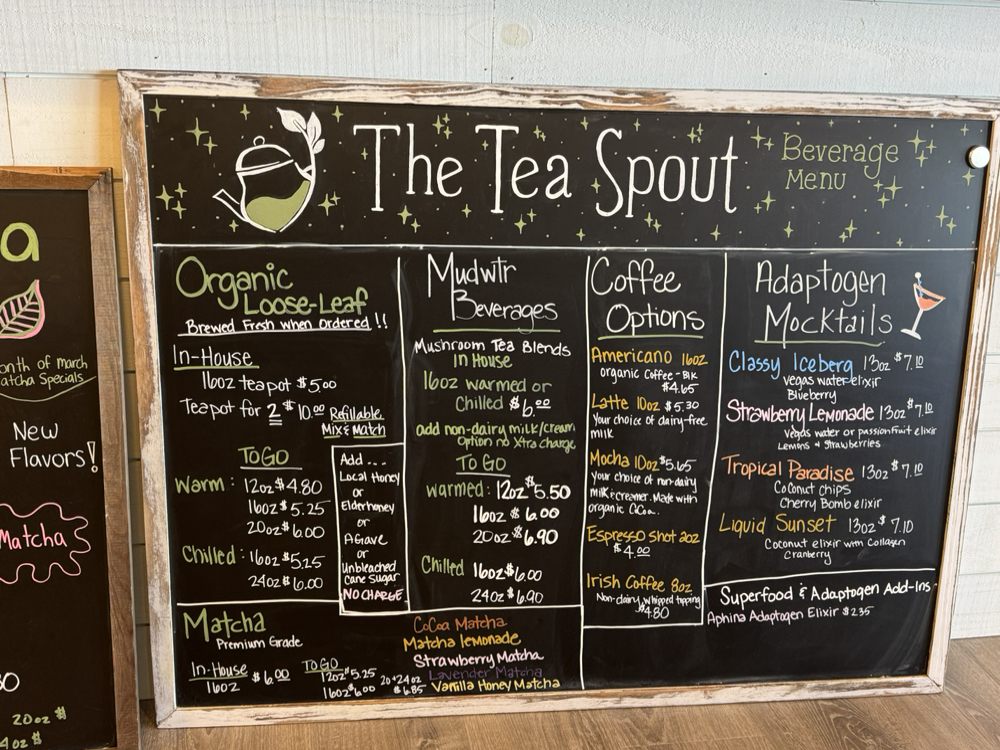 The Tea Spout
Beverage
Menu
Organic
Loose-Leaf
Brewed Fresh when Ordered!!
In-House
16oz teapot $5.00
Teapot for 2 $10.00 Refillable
Mix & Match
TO GO
Warm: 12oz $4.80
16oz $5.25
20oz $6.00
Chilled: 16oz $5.25
24oz $6.00
Add....
Local Honey
or
Elderhoney
or
Agave
or
Unbleached
Cane Sugar
NO CHARGE
Mudwtr
Beverages
Mushroom Tea Blends
In House
16oz warmed or
Chilled $6.00
add non-dairy milk/cream
option no Xtra charge
TO GO
warmed: 12oz $5.50
16oz $6.00
20oz $6.90
Chilled 16oz $6.00
24oz $6.90
Coffee
Options
Americano 16oz
organic Coffee-Blk
$4.65
Latte 10oz $5.30
Your choice of dairy-free
milk
Mocha 10oz $5.65
Your choice of non-dairy
milk & creamer. Made with
organic CoCoa.
Espresso shot 2oz
$4.00
Irish Coffee 8oz
Non-dairy whipped topping
$4.80
Adaptogen
Mocktails
Classy Iceberg 13oz $7.10
vegas water elixir
Blueberry
Strawberry Lemonade 13oz $7.10
vegas water or passionfruit elixir
Lemons & Strawberries
Tropical Paradise 13oz $7.10
Coconut chips
Cherry Bomb elixir
Liquid Sunset 13oz $7.10
Coconut elixir with Collagen
Cranberry
Superfood & Adaptogen Add-Ins
Aphina Adaptogen Elixir $2.35
Matcha
Premium Grade
In-House
16oz $6.00
TO GO
12oz $5.25
16oz $6.00
20+24oz
$6.85
CoCoa Matcha
Matcha lemonade
Strawberry Matcha
Lavender Matcha
Vanilla Honey Matcha
a
onth of march
atcha Specials
New
Flavors!
Matcha
20oz $
4oz $